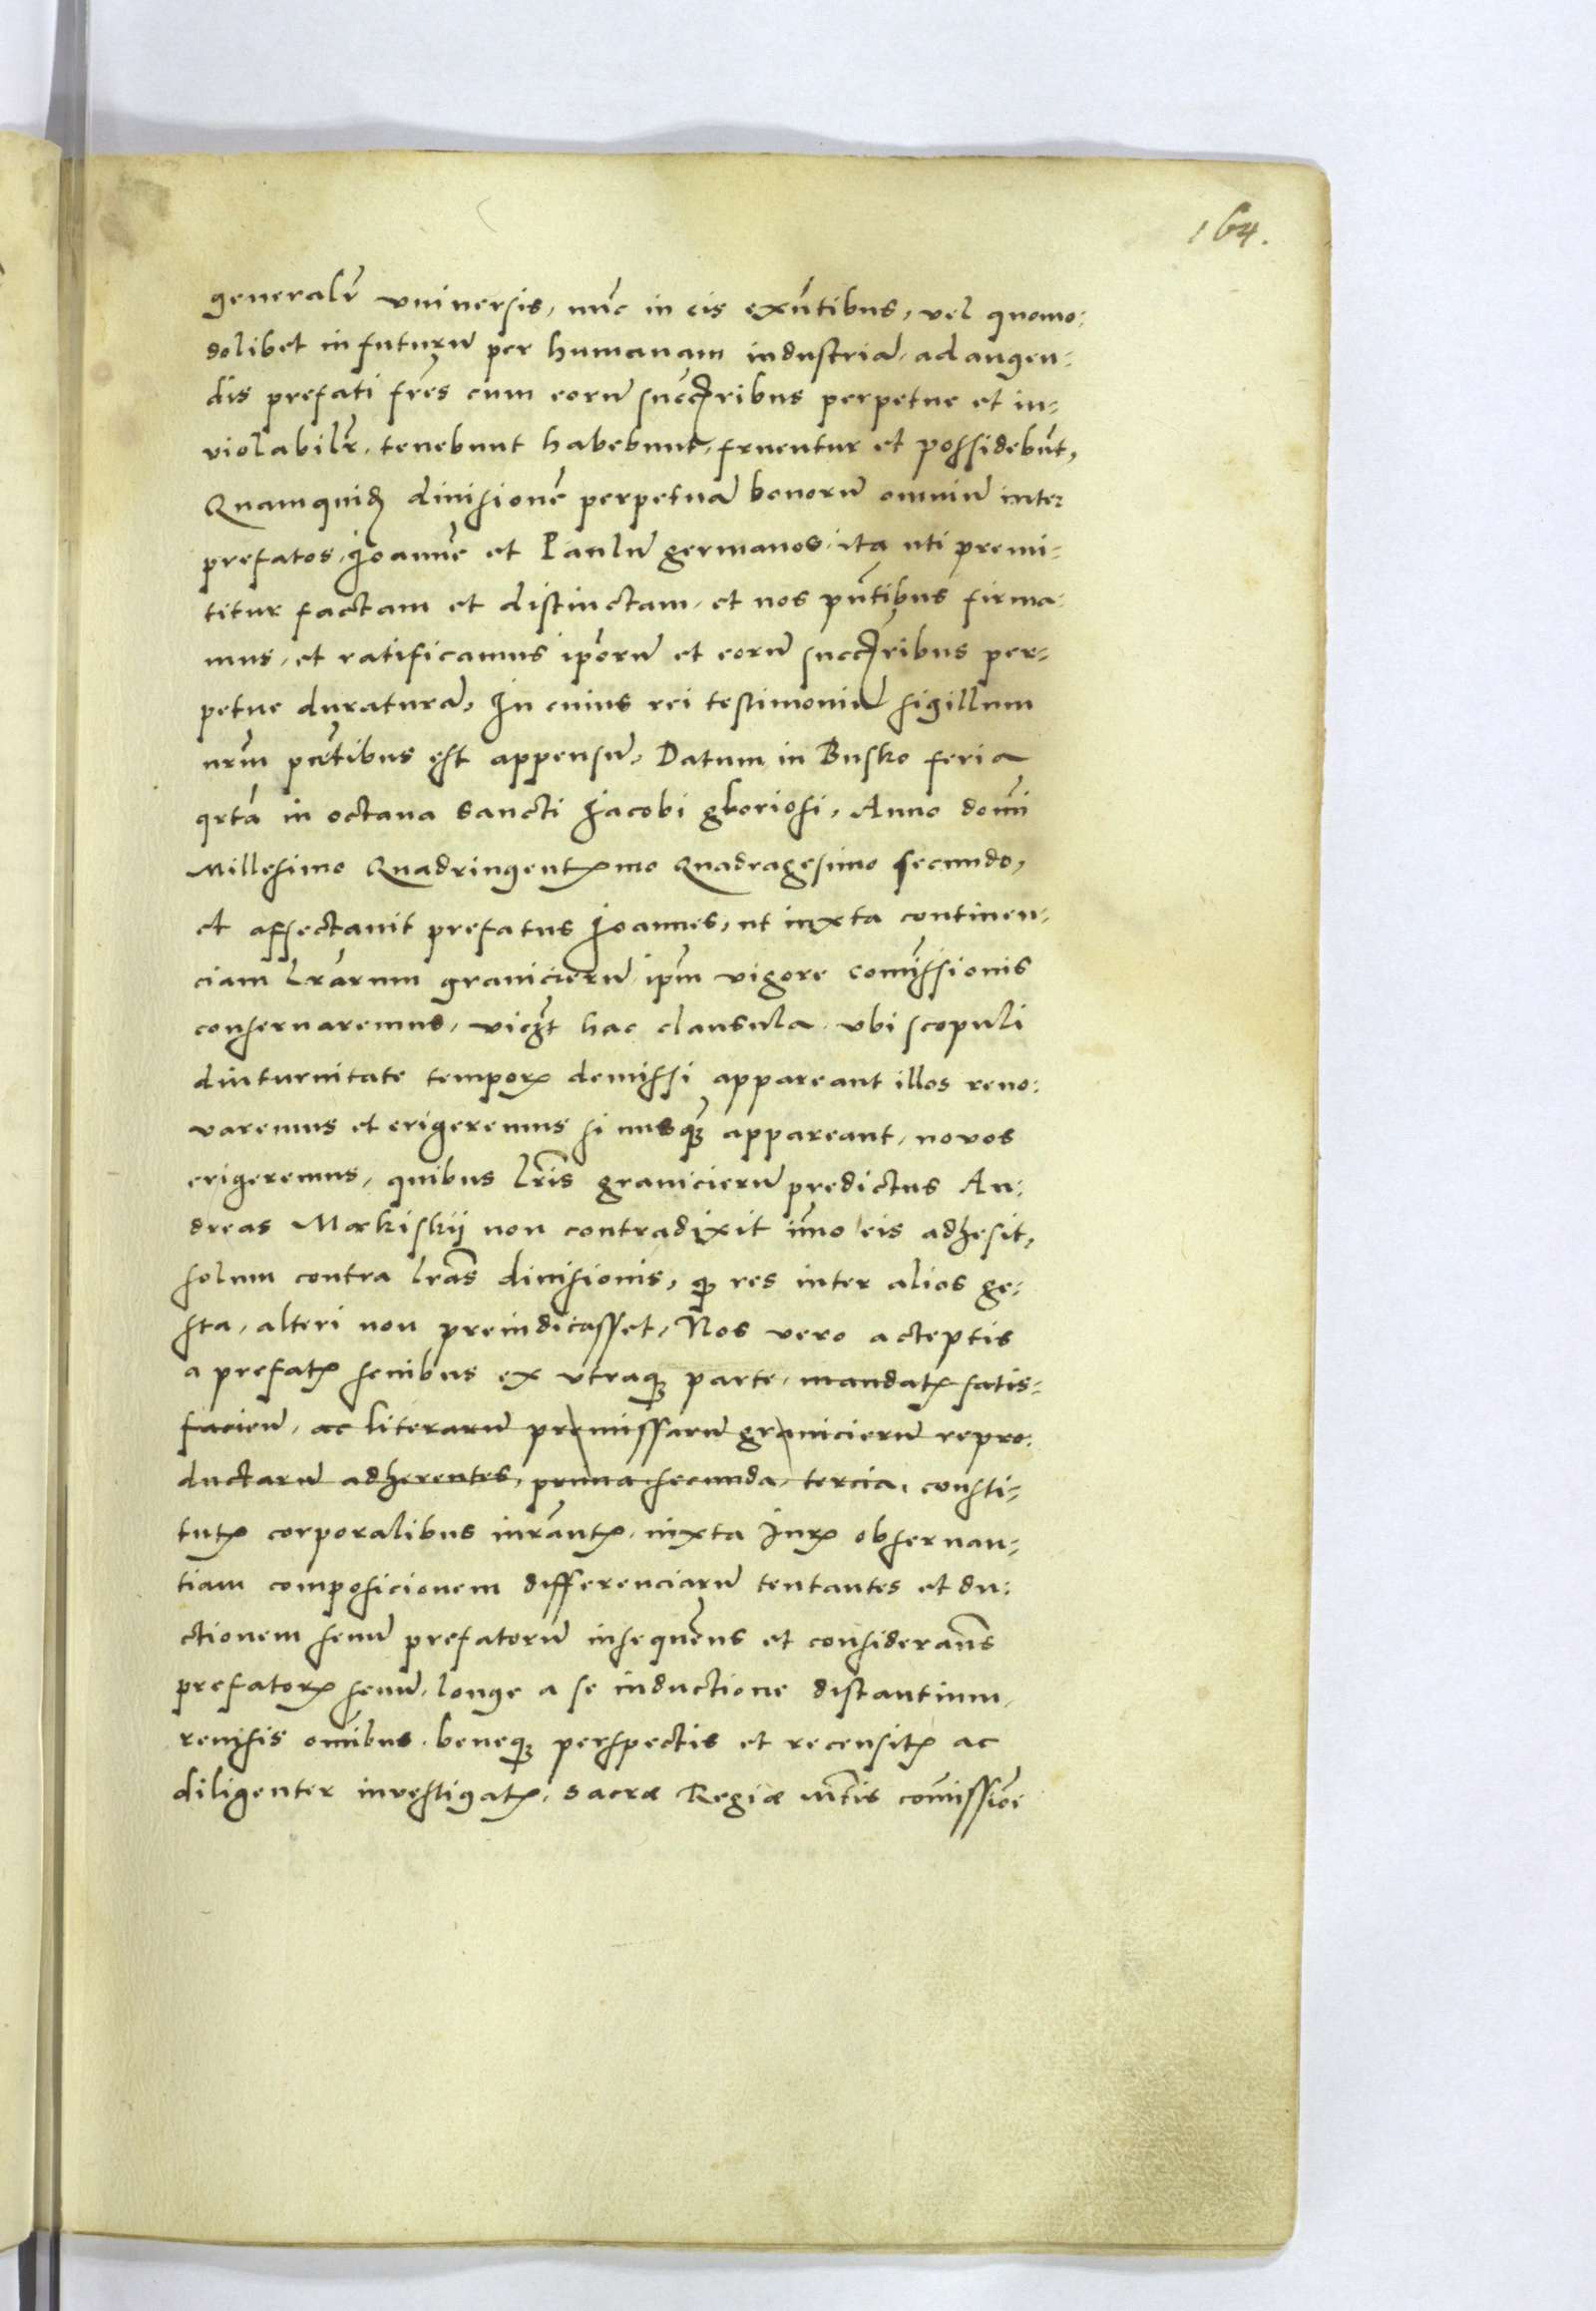 164.
generalr̃ vniuersis, nũc in eis exñtibus, vel quomo:
dolibet in futurũ per humanam industriã, ad augen:
dis prefati frẽs cum eorũ succꝭribus perpetue et in:
violabilr̃, tenebunt habebunt, fruentur et possidebũt,
Quamquidẽ diuisionẽ perpetuã bonorũ omniũ inter
prefatos, Joannẽ et Paulũ germanos, ita uti premi:
titur factam et distinctam, et nos pñtibus firma:
mus, et ratificamus ip̃orũ et eorũ succꝭribus per:
petue duraturã, In cuius rei testimoniũ sigillum
nrm̃ pñtibus est appensũ, Datum in Busko feria
qrtã in octaua Sancti Jacobi gloriosi, Anno dom̃i
Millesimo Quadringentꝭmo Quadragesimo secundo,
et affectauit prefatus Joannes, ut iuxta continen:
ciam lrãrum granicierũ ip̃m vigore com̃issionis
conseruaremus, viczt̃ hac clausula, vbi scopuli
diuturnitate temporꝭ demissi appareant illos reno:
varemus et erigeremus si nusqꝫ appareant, novos
erigeremus, quibus lr̃is granicierũ predictus An:
dreas Mækiskij non contradixit im̃o eis adhesit,
solum contra lrãs diuisionis, qꝫ res inter alios ge:
sta, alteri non preiudicasset, Nos vero acceptis
a prefatꝭ senibus ex vtraqꝫ parte, mandatꝭ satis:
faciẽn, ac literarũ premissarũ granicierũ repro:
ductarũ adherentes, prima secunda, tercia, consti:
tutꝭ corporalibus iurãntꝭ, iuxta Jurꝭ obseruan:
tiam composicionem differenciarũ tentantes et du:
ctionem senũ prefatorũ insequẽns et considerañs
prefatorꝭ senũ, longe a se inductione distantium,
reuisis om̃ibus, beneqꝫ perspectis et recensitꝭ ac
diligenter investigatꝭ, Sacræ Regiæ Mtĩs com̃issiõi